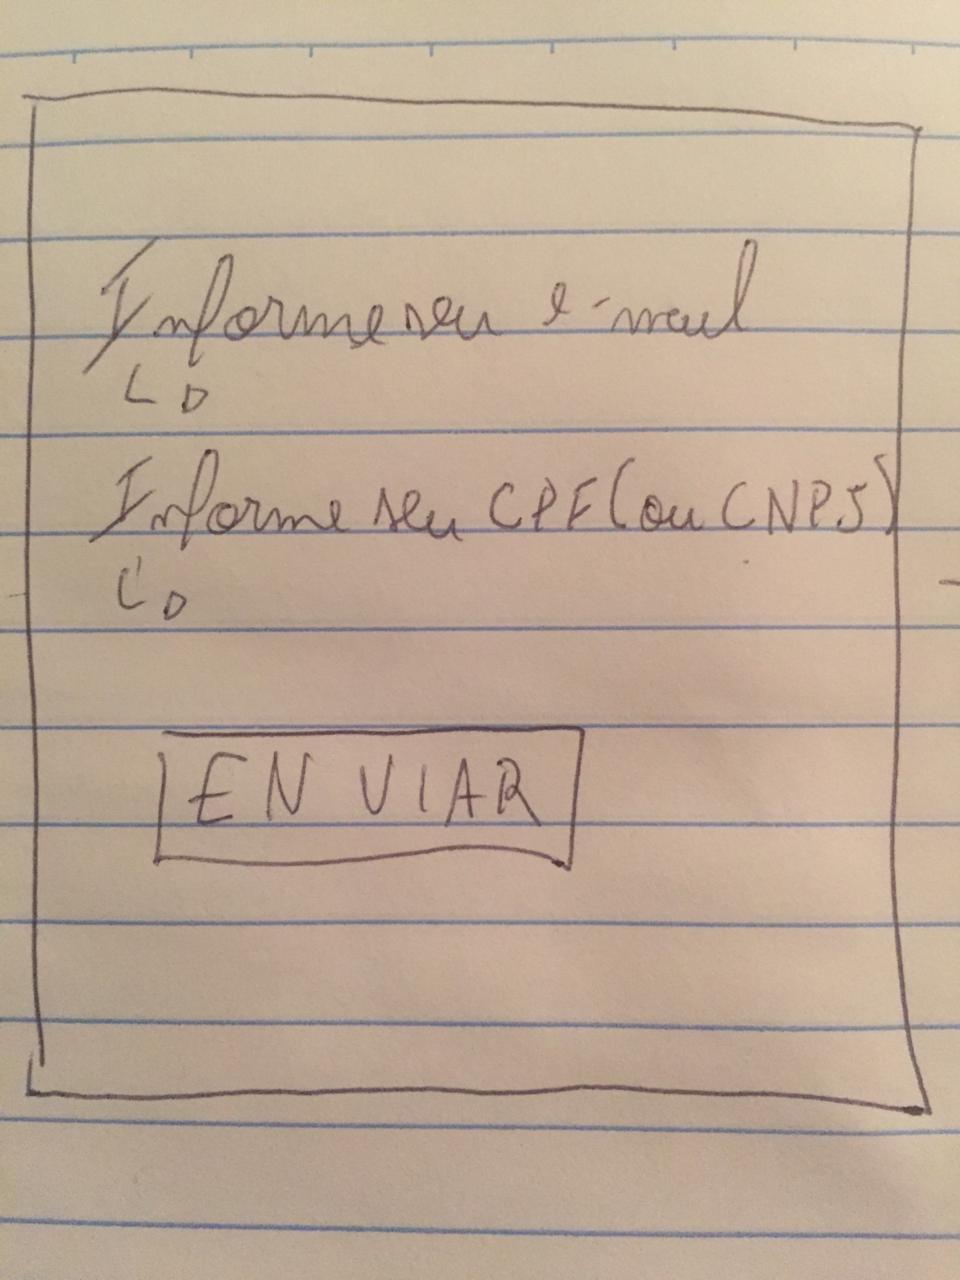 Informe seu e-mail
Informe seu CPF (ou CNPJ)
ENVIAR